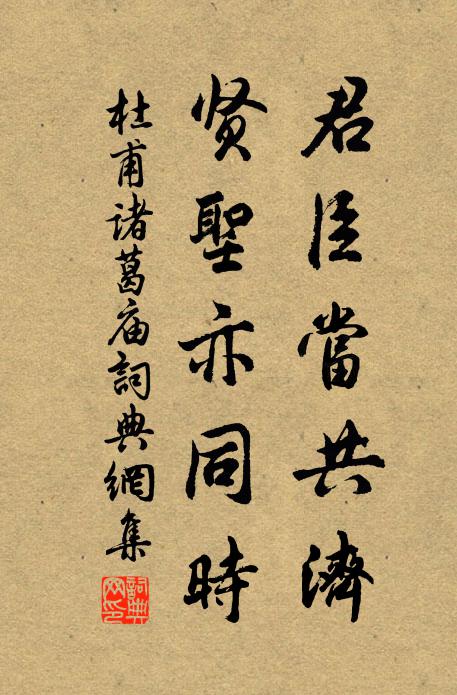 君臣當共濟
贤聖亦同時
杜甫诸葛庙詞典網集
詞典网印